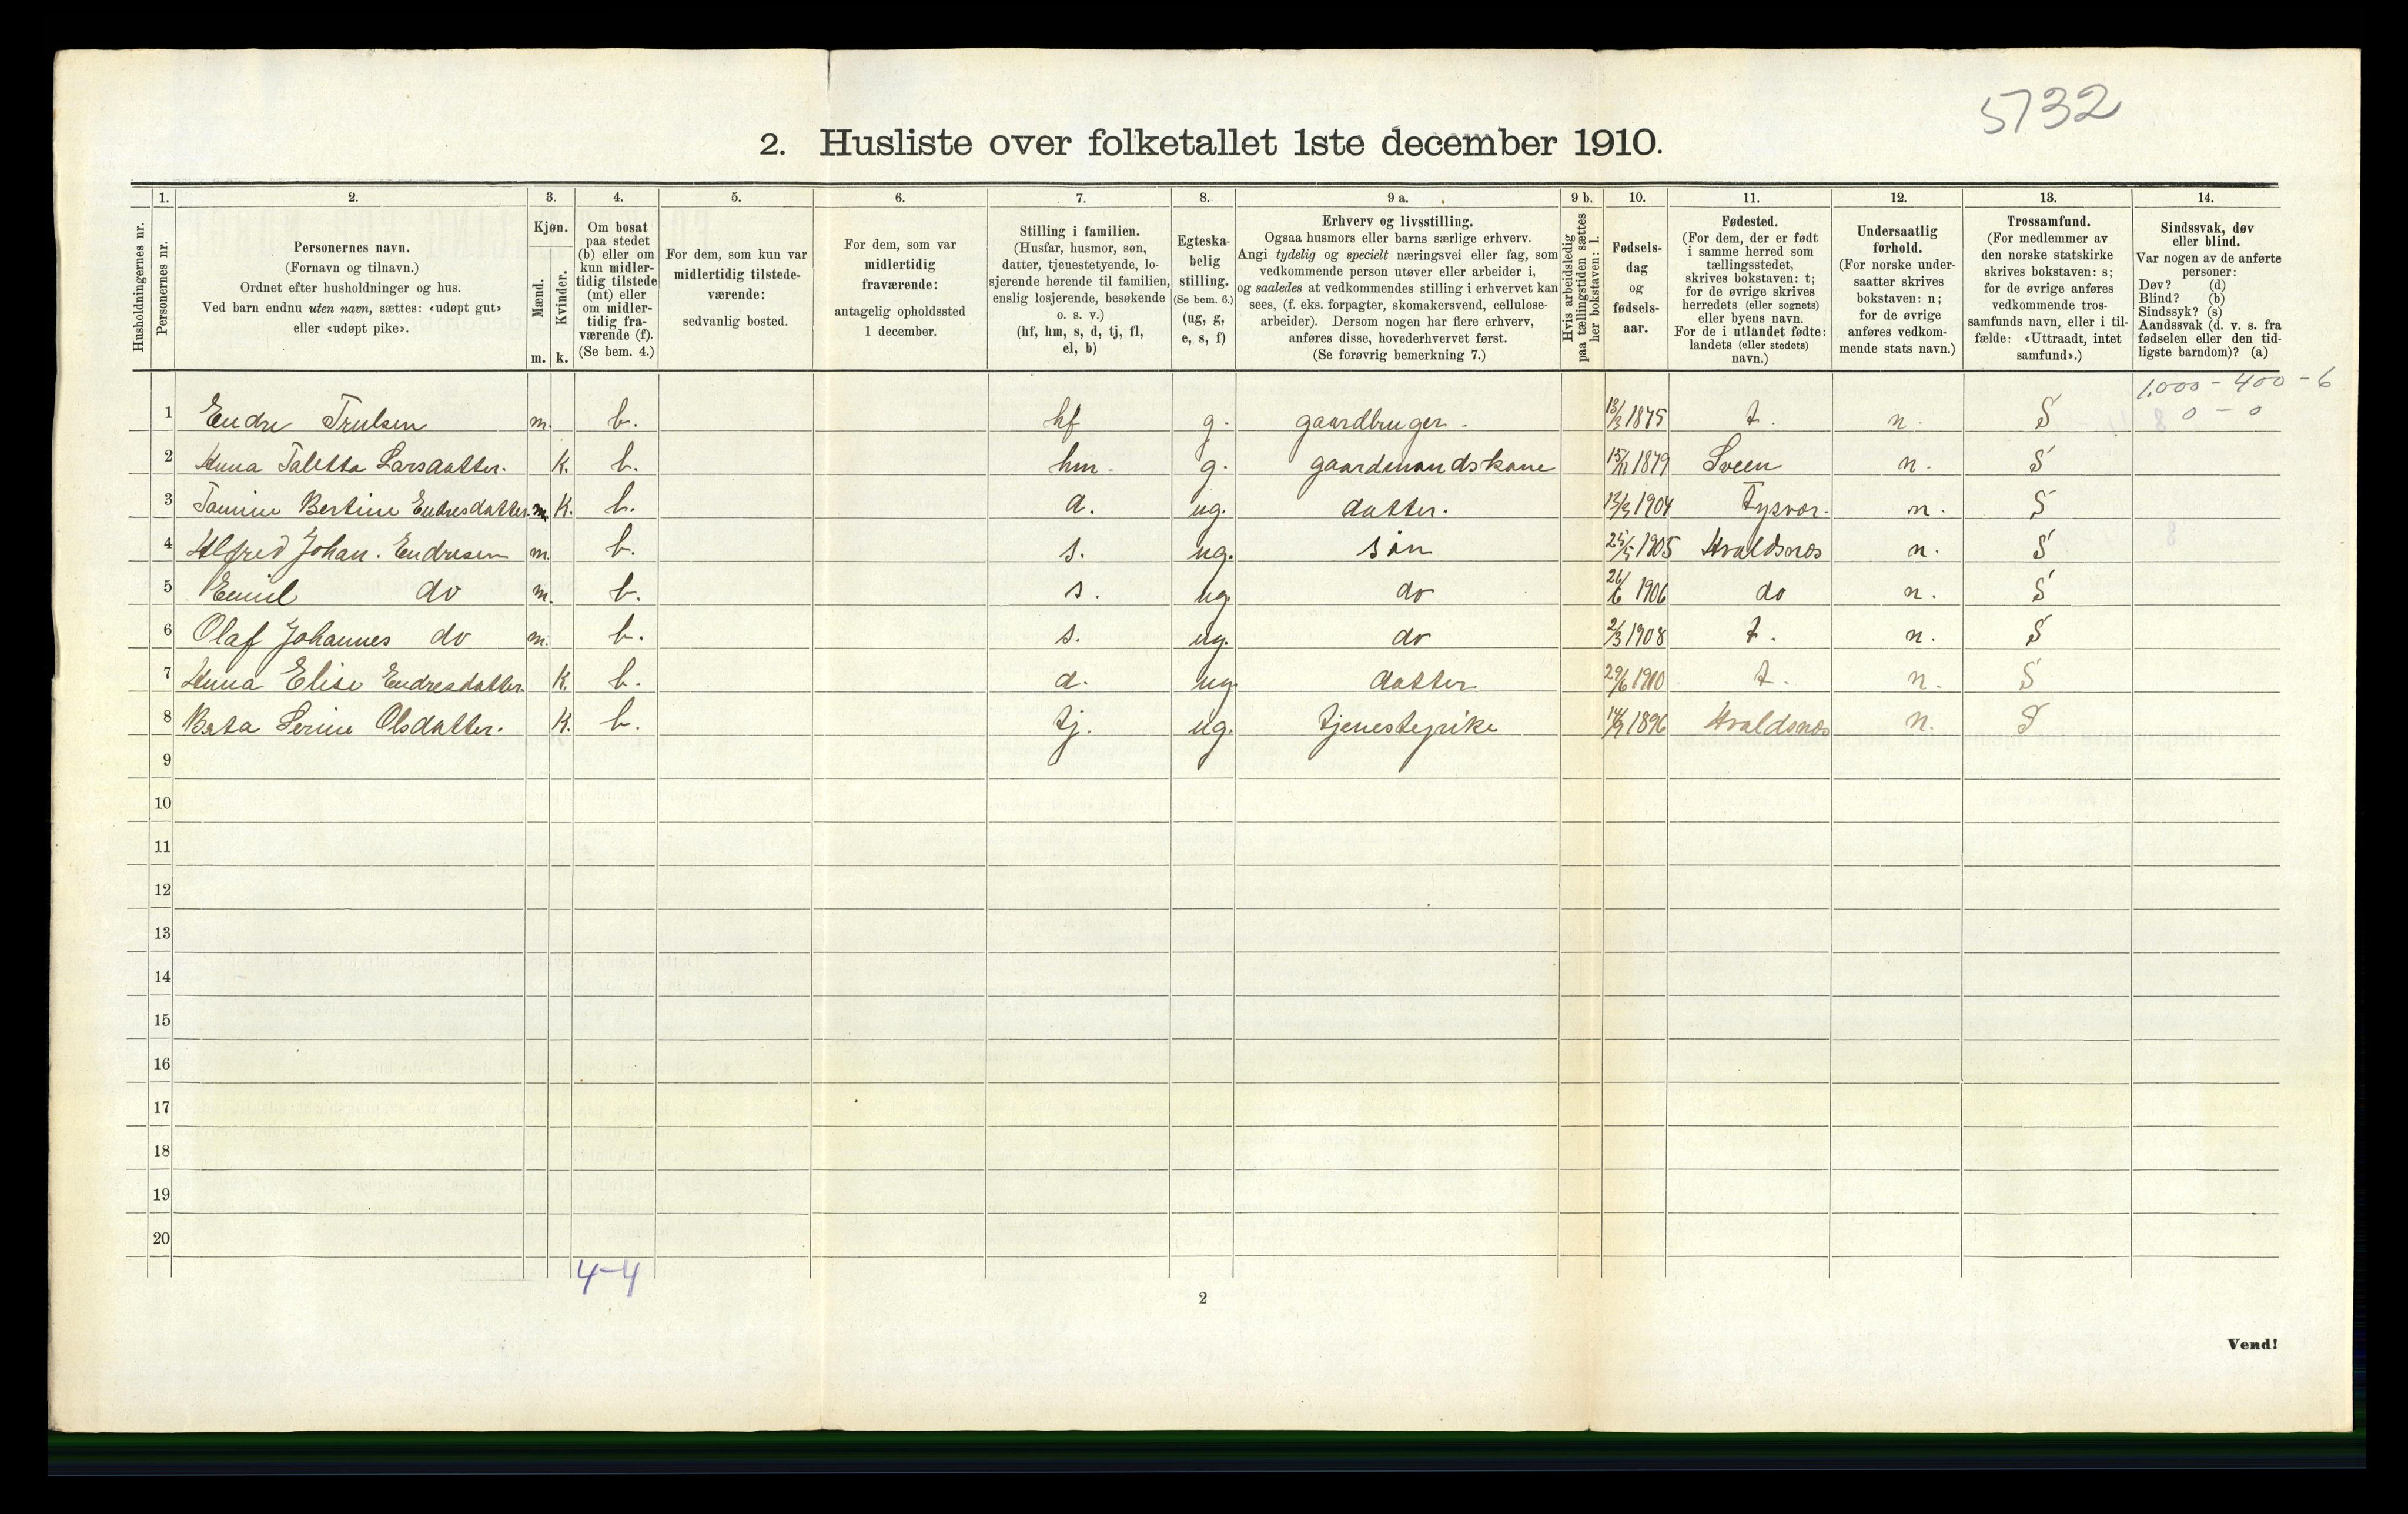 5732
2. Husliste over folketallet 1ste december 1910.
Husholdningernes nr.
1. Personernes nr.
2. Personernes navn.
(Fornavn og tilnavn.)
Ordnet efter husholdninger og hus.
Ved barn endnu uten navn, sættes: «udøpt gut»
eller «udøpt pike».
3. Kjøn.
Mænd. m.
Kvinder. k.
4. Om bosat
paa stedet
(b) eller om
kun midler-
tidig tilstede
(mt) eller
om midler-
tidig fra-
værende (f).
(Se bem. 4.)
5. For dem, som kun var
midlertidig tilstede-
værende:
sedvanlig bosted.
6. For dem, som var
midlertidig
fraværende:
antagelig opholdssted
1 december.
7. Stilling i familien.
(Husfar, husmor, søn,
datter, tjenestetyende, lo-
sjerende hørende til familien,
enslig losjerende, besøkende
o. s. v.)
(hf, hm, s, d, tj, fl,
el, b)
8. Egteska-
belig
stilling.
(Se bem. 6.)
(ug, g,
e, s, f)
9 a. Erhverv og livsstilling.
Ogsaa husmors eller barns særlige erhverv.
Angi tydelig og specielt næringsvei eller fag, som
vedkommende person utøver eller arbeider i,
og saaledes at vedkommendes stilling i erhvervet kan
sees, (f. eks. forpagter, skomakersvend, cellulose-
arbeider). Dersom nogen har flere erhverv,
anføres disse, hovederhvervet først.
(Se forøvrig bemerkning 7.)
9 b. Hvis arbeidsledig
paa tællingstiden sættes
her bokstaven: l.
10. Fødsels-
dag
og
fødsels-
aar.
11. Fødested.
(For dem, der er født
i samme herred som
tællingsstedet,
skrives bokstaven: t;
for de øvrige skrives
herredets (eller sognets)
eller byens navn.
For de i utlandet fødte:
landets (eller stedets)
navn.)
12. Undersaatlig
forhold.
(For norske under-
saatter skrives
bokstaven: n;
for de øvrige
anføres vedkom-
mende stats navn.)
13. Trossamfund.
(For medlemmer av
den norske statskirke
skrives bokstaven: s;
for de øvrige anføres
vedkommende tros-
samfunds navn, eller i til-
fælde: «Uttraadt, intet
samfund».)
14. Sindssvak, døv
eller blind.
Var nogen av de anførte
personer:
Døv? (d)
Blind? (b)
Sindssyk? (s)
Aandssvak (d. v. s. fra
fødselen eller den tid-
ligste barndom)? (a)
1,000 - 400 - 6
0 - 0
1 Endre Trulsen m. b. hf g. gaardbruger. 1875 t. n. S
2 Anna Taletta Larsdatter. K. b. hm. g. gaardmandskone 1879 Sveen n. S
3 Tomine Bertine Endresdatter. K. b. d. ug. datter. 1904 Tysvær. n. S
4 Alfred Johan. Endresen m. b. s. ug. søn 25/5 1905 Hvaldsnæs n. S
5 Emil do m. b. s. ug. do 26/6 1906 do n. S
6 Olaf Johannes do m. b. s. ug. do 2/3 1908 t. n. S
7 Anna Elise Endresdatter. K. b. d. ug. datter 29/6 1910 t. n. S
8 Berta Serine Olsdatter. K. b. tj. ug. tjenestepike 14/9 1896 Hvaldsnæs n. S
9
10
11
12
13
14
15
16
17
18
19
20
4-4
2
Vend!